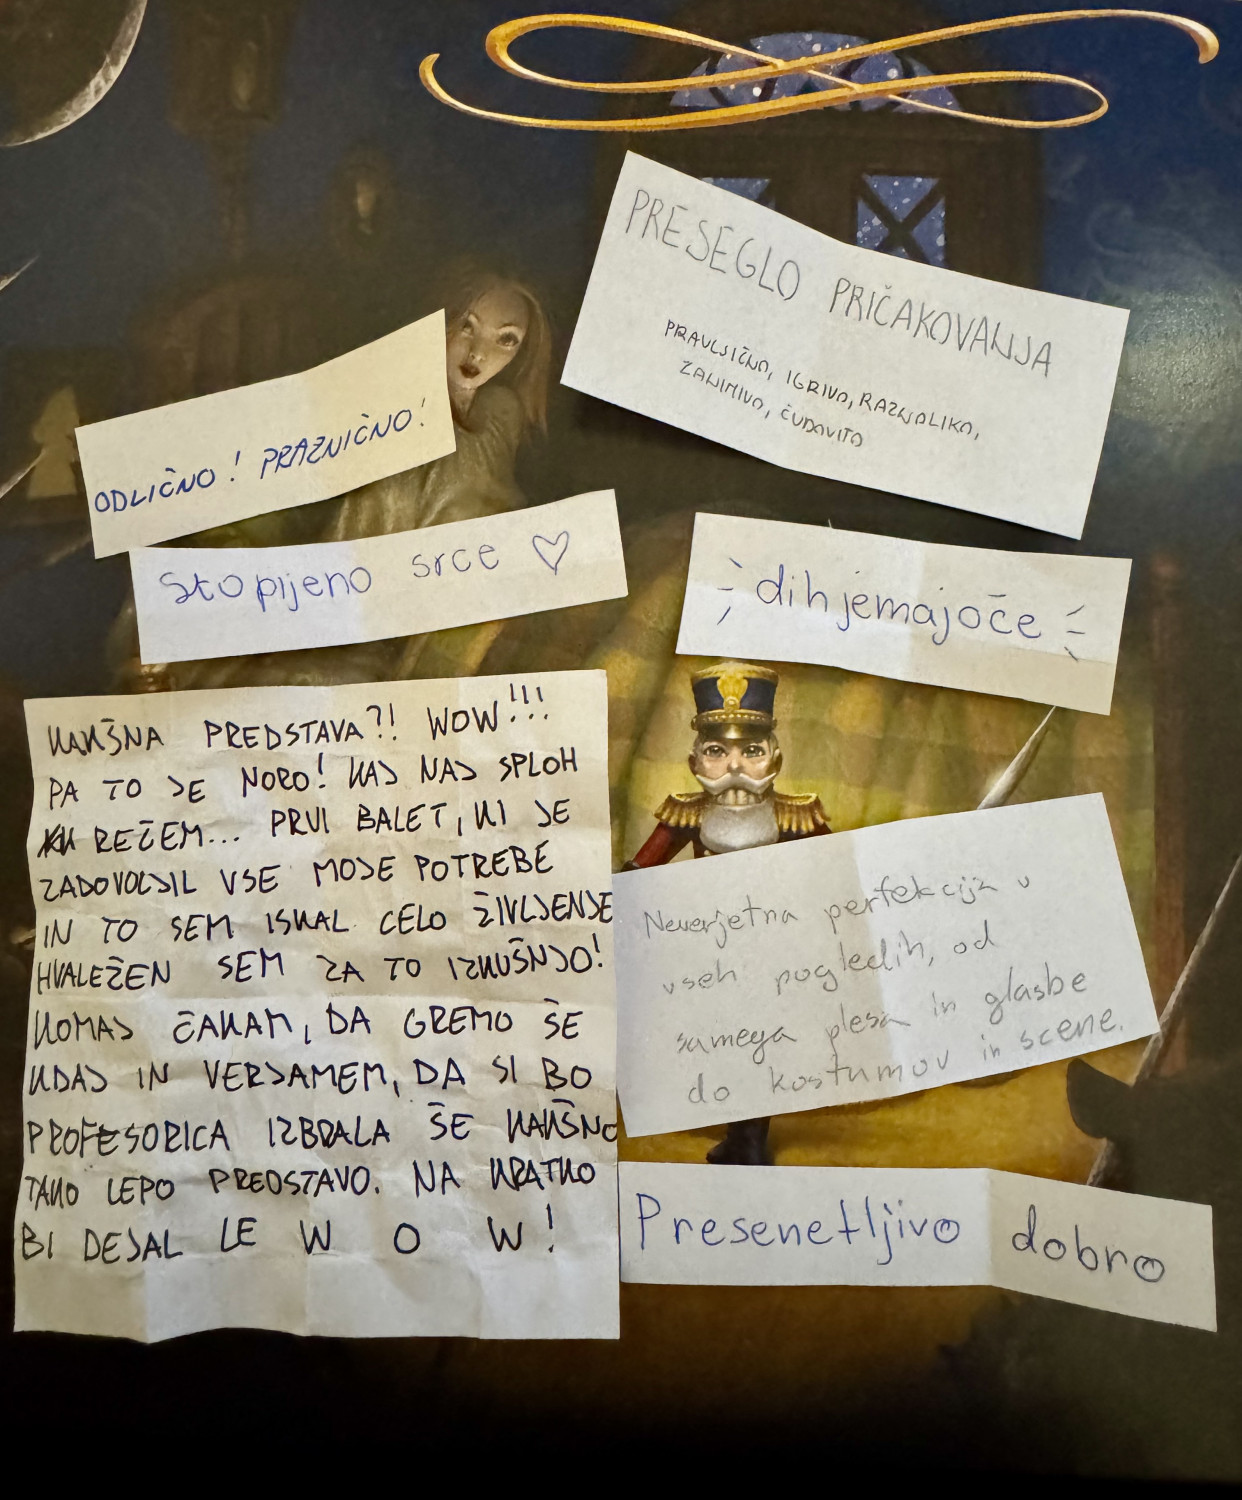 PRESEGLO PRIČAKOVANJA
PRAVLJIČNO, IGRIVO, RAZNOLIKO,
ZANIMIVO, ČUDOVITO
ODLIČNO! PRAZNIČNO!
Stopljeno srce ♡
dihjemajoče
KAKŠNA PREDSTAVA?! WOW!!!
PA TO JE NORO! KAJ NAJ SPLOH
REČEM... PRVI BALET, KI JE
ZADOVOLJIL VSE MOJE POTREBE
IN TO SEM ISKAL CELO ŽIVLJENJE
HVALEŽEN SEM ZA TO IZKUŠNJO!
KOMAJ ČAKAM, DA GREMO ŠE
KDAJ IN VERJAMEM, DA SI BO
PROFESORICA IZBRALA ŠE KAKŠNO
TAKO LEPO PREDSTAVO. NA KRATKO
BI DEJAL LE W O W!
Neverjetna perfekcija v
vseh pogledih, od
samega plesa in glasbe
do kostumov in scene.
Presenetljivo dobro